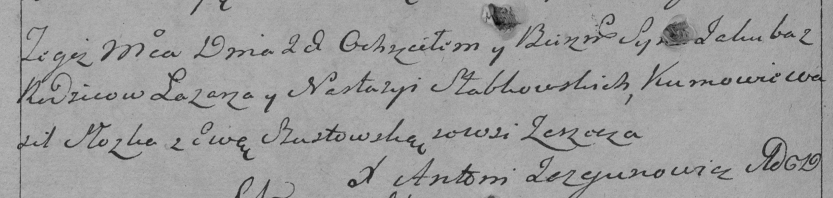 Tegoż Mca Dnia 28 Ochrzciłem y Birzm Syna Jakuba z
Rodzicow Łazarza y Nastazyi Słabkowskich, Kumowie wa
sil Mozba z Ewą Szustowską zewsi
X Antoni Jozgunowicz